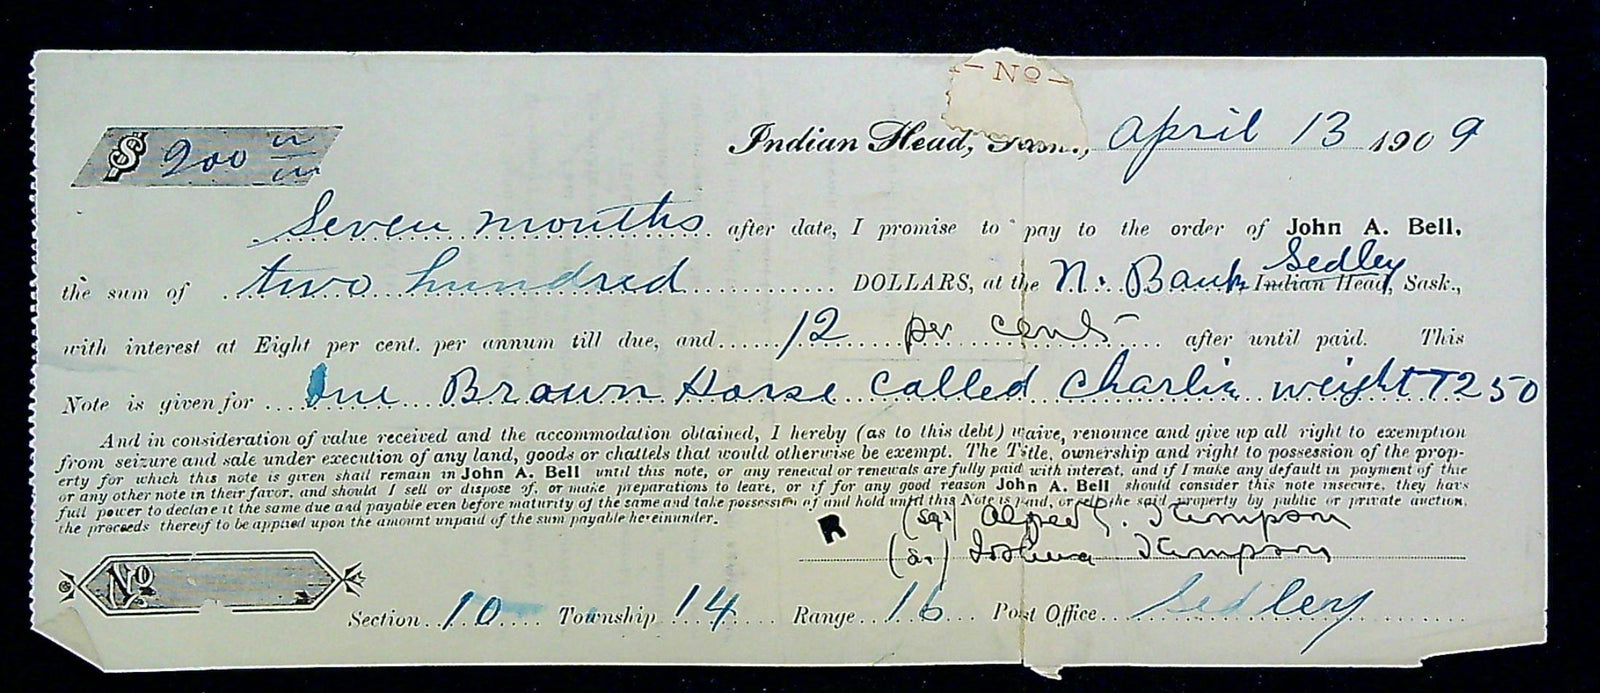 - No -
Indian Head, Sask., April 13 1909
$ 200
Seven months after date, I promise to pay to the order of John A. Bell,
the sum of two hundred DOLLARS, at the N. Bank Sedley Indian Head, Sask.,
with interest at Eight per cent. per annum till due, and 12 per cent after until paid. This
Note is given for One Brown Horse called Charlie weight 1250
And in consideration of value received and the accommodation obtained, I hereby (as to this debt) waive, renounce and give up all right to exemption
from seizure and sale under execution of any land, goods or chattels that would otherwise be exempt. The Title, ownership and right to possession of the prop-
erty for which this note is given shall remain in John A. Bell until this note, or any renewal or renewals are fully paid with interest, and if I make any default in payment of this
or any other note in their favor, and should I sell or dispose of, or make preparations to leave, or if for any good reason John A. Bell should consider this note insecure, they have
full power to declare it the same due and payable even before maturity of the same and take possession of and hold until this Note is paid, or sell the said property by public or private auction,
the proceeds thereof to be applied upon the amount unpaid of the sum payable hereinunder.
R
(sg) Alfred Stimpson
Joshua Stimpson
No
Section 10 Township 14 Range 16 Post Office Sedley